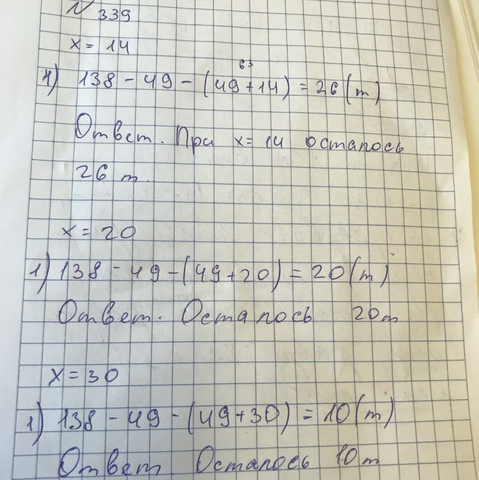 № 339
x = 14
1) 138 - 49 - (49 + 14) = 26 (т)
63
Ответ. При x = 14 осталось
26 т.
x = 20
1) 138 - 49 - (49 + 20) = 20 (т)
Ответ. Осталось 20т
x = 30
1) 138 - 49 - (49 + 30) = 10 (т)
Ответ. Осталось 10т